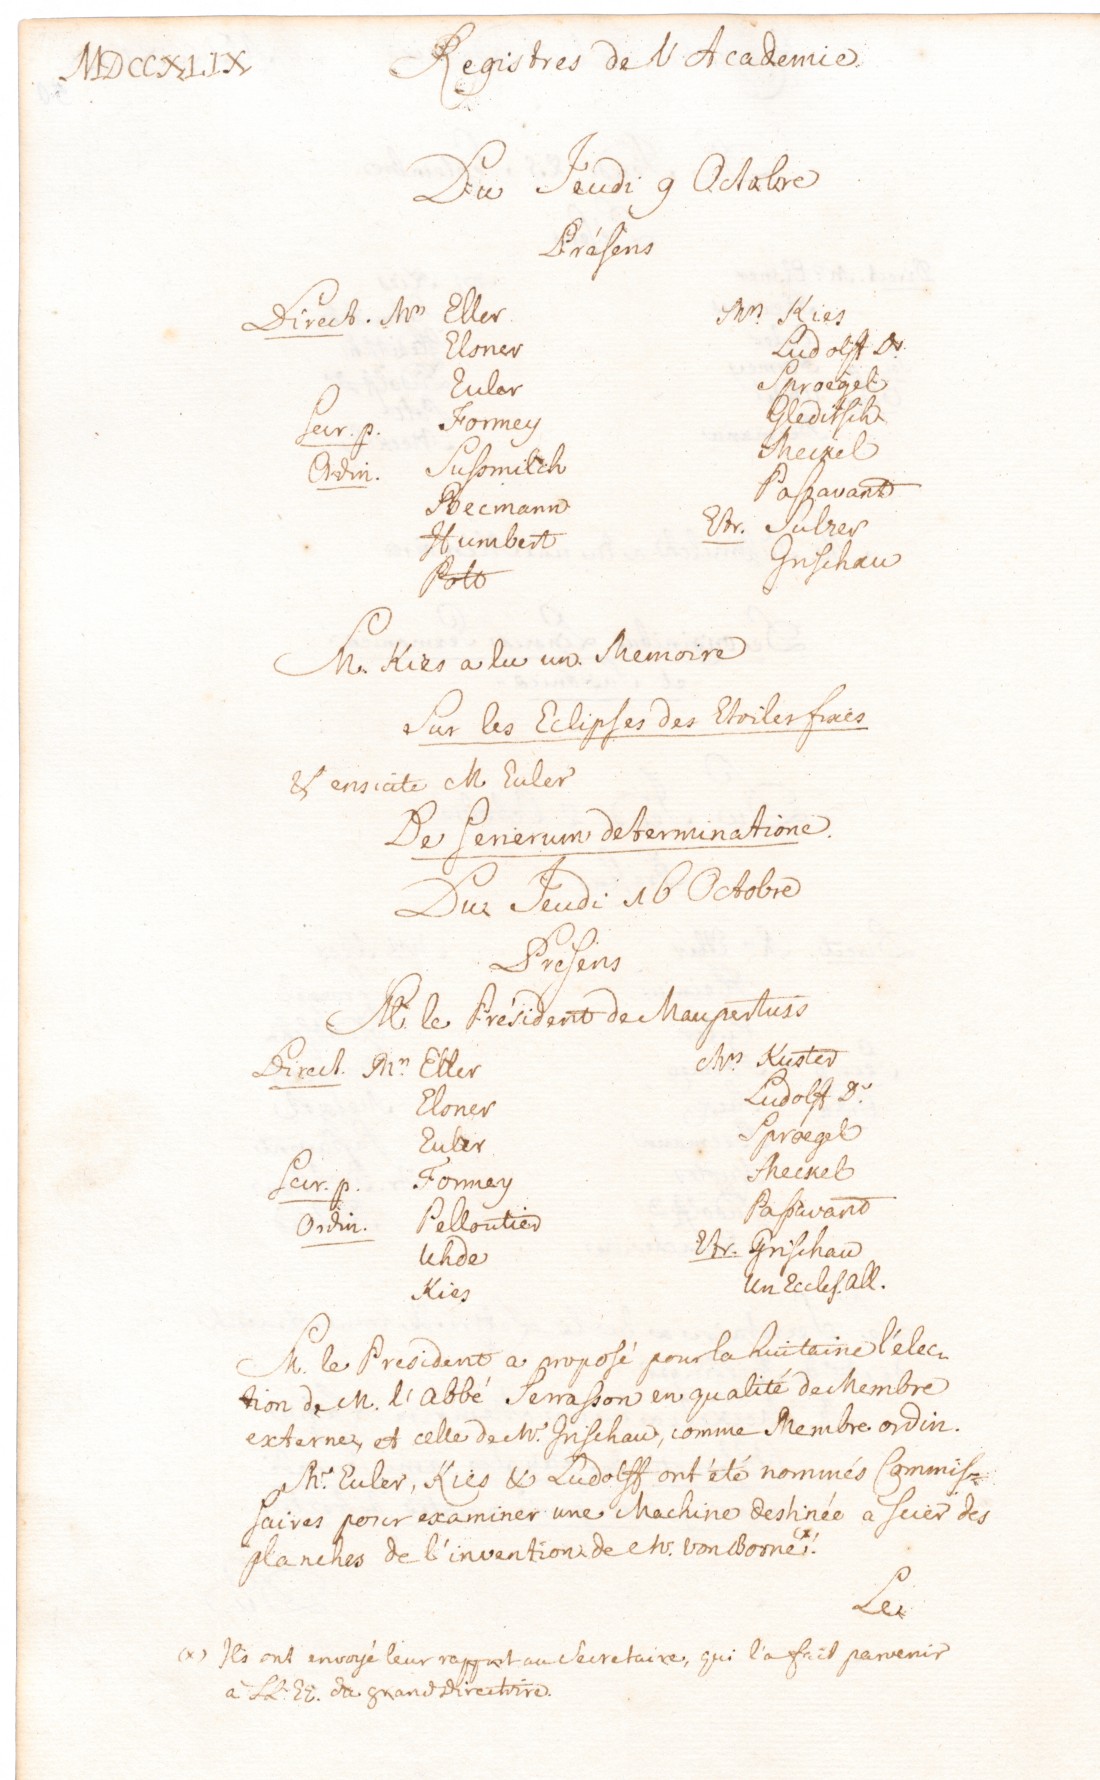 MDCCXLIX
Registres de l'Academie.
Du Jeudi 9 Octobre
Présens
Direct. Mrs Eller
Elsner
Euler
Secr. p. Formey
Ordin. Sussmilch
Becmann
Humbert
Pott
Mrs. Kies
Ludolff Dr.
Sproegel
Gleditsch
Meckel
Passavant
Etr. Sulzer
Grischau
M. Kies a lu un Memoire
Sur les Eclipses des Etoiles fixes
& ensuite M Euler
De Serierum determinatione.
Du Jeudi 16 Octobre
Présens
M. le Président de Maupertuis
Direct. Mrs Eller
Elsner
Euler
Secr. p. Formey
Ordin. Pelloutier
Uhde
Kies
Mrs Kuster
Ludolff Dr.
Sproegel
Meckel
Passavant
Etr. Grischau
Un Eccles. All.
M. le President a proposé pour la huitaine l'élec-
tion de M. l'Abbé Serrasson en qualité de Membre
externe, et celle de Mr. Grischau, comme Membre ordin.
Mrs Euler, Kies & Ludolff ont été nommés Commis-
saires pour examiner une Machine destinée a scier des
planches de l'invention de Mr. von Borne (x).
Le
(x) Ils ont envoyé leur rapport au Secretaire, qui l'a fait parvenir
à LL. EE. du grand Directoire.